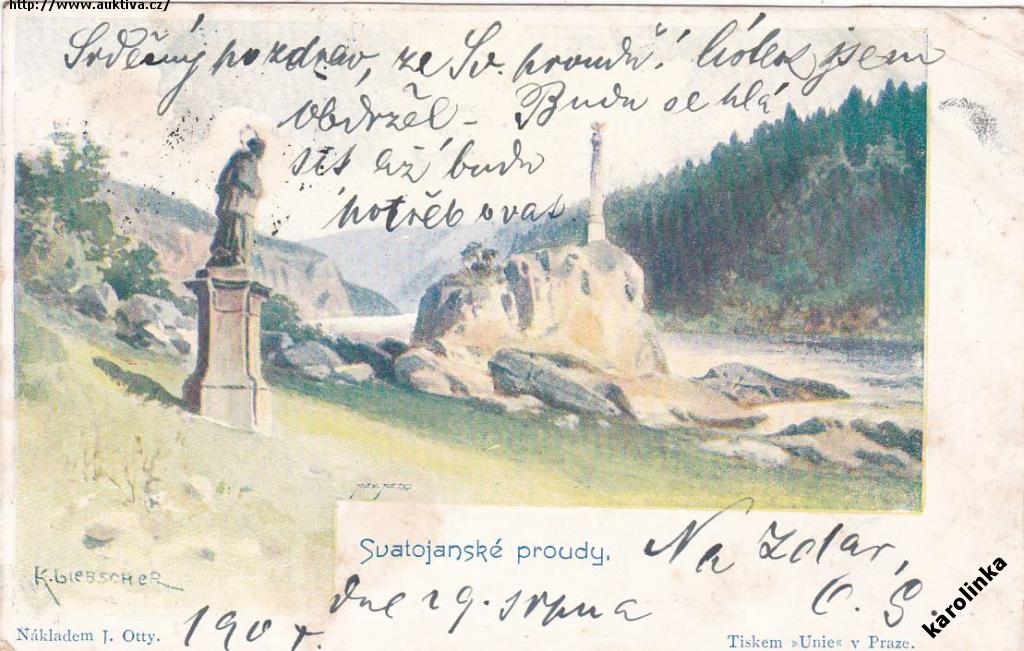 http://www.auktiva.cz/
Srdečný pozdrav, ze Sv. proudů! lístek jsem
obdržel - Budu se hlá
sit až budu
potřebovat
Svatojanské proudy.
Na Zdar,
dne 29. srpna
Č. S.
K. LIEBSCHER
190
Nákladem J. Otty.
Tiskem »Unie« v Praze.
karolinka